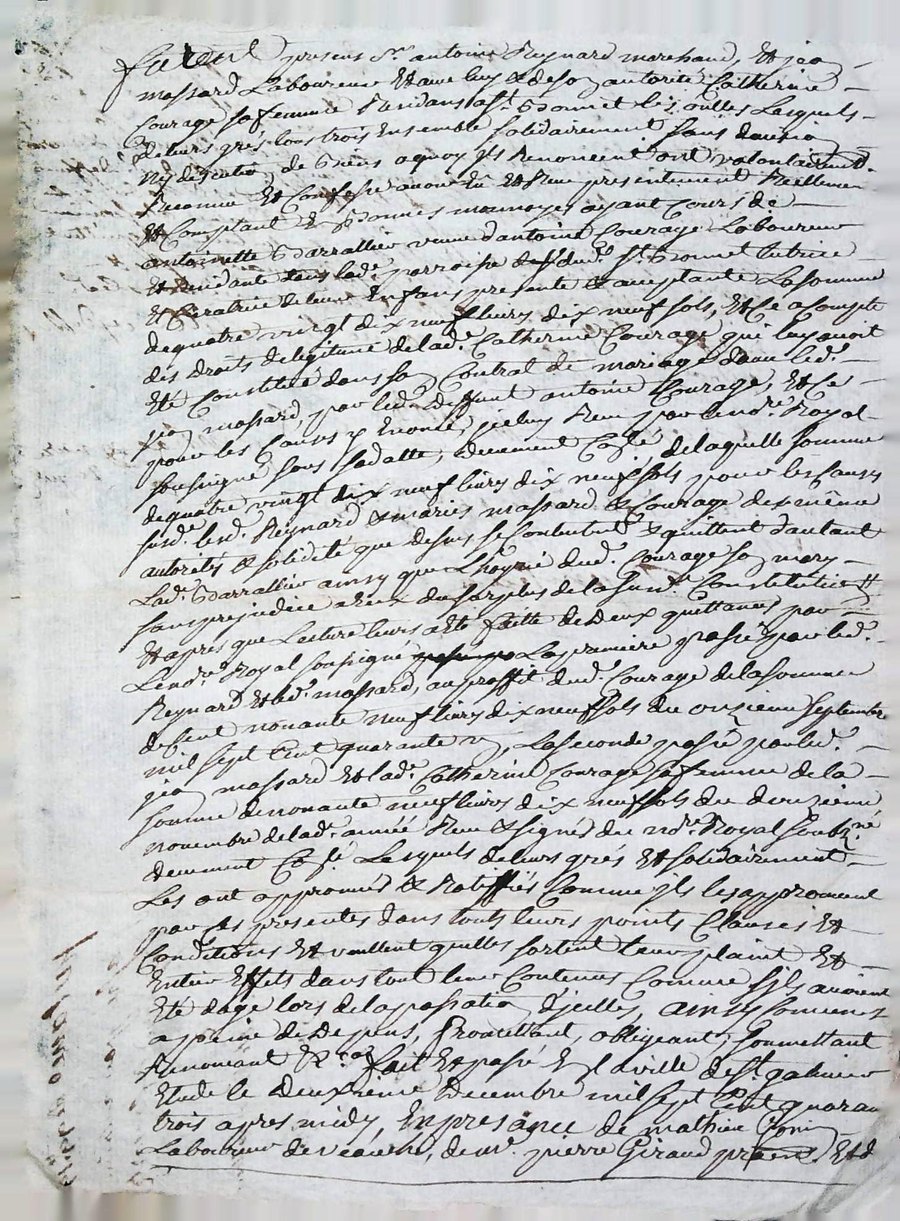 furent presens Sr antoine Reynard marchand, Et jean
massard Laboureur Et avec luy & de son autorité Catherine
Courage sa femme Residans a St Bonnet les oulles Lesquels
de leurs grés tous trois Ensemble solidairement sans division
ny discution de biens aquoy jls Renoncent ont volontairemt
Reconnu Et Confessé avoir Eu Et Reçu presentement Reellement
Et Comptant En bonnes monnoyes ayant Cours de
antoinette Barrallier veuve d'antoine Courage Laboureur
Et Residante dans lad. parroisse dud. St Bonnet tutrice
Et Curatrice de leurs Enfans presente & acceptante La somme
de quatre vingt dix neuf livres dix neuf sols, Et Ce a Compte
des droits de legitime de lad. Catherine Courage qui luy avoit
Eté Constitué dans son Contrat de mariage avec led.
jean massard par led. deffunt antoine Courage, Et Ce
pour les Causes y Enoncé, jceluy Reçu par le nore Royal
soussigné sous sa datte, deuement Collé, de laquelle somme
de quatre vingt dix neuf livres dix neuf sols pour les Causes
susd. lesd. Reynard & mariés massard & Courage des même
autorités & solidité que dessus se Contentent & quittent d'autant
Lad. Barrallier ainsy que L'hoyrie dud. Courage son mary
sans prejudice a Eux du surplus de la susd. Constitution
Et apres que Lecture leurs a Eté faitte de Deux quittances par
Le nore Royal soussigné La premiere passée par led.
Reynard Et led. massard, au proffit dud. Courage de la somme
de Cent nonante neuf livres dix neuf sols du onzieme Septembre
mil sept Cent quarante un, La seconde passée par led.
jean massard Et lad. Catherine Courage sa femme de la
somme de nonante neuf livres dix neuf sols du douzieme
novembre de lad. année Reçu & signés du nore Royal soussigné
deuement Collé Lesquels de leurs grés Et solidairement
Les ont approuvés & Ratiffiés Comme jls les approuvent
par Ces presentes dans touts leurs points Clauses Et
Conditions Et veullent quelles sortent leur plaint Et
Entier Effets dans tout leur Contenus Comme s'jls avoient
Eté dage lors de la passation d'jcelles, ainsy Convenus
a peine de Depens, Promettant, obligeant, soumettant
Renonçant &ca fait Et passé En la ville de St galmier
Etude le Deuxieme Decembre mil sept Cent quarante
trois apres midy, En presance de mathieu
Laboureur de veauche, de mr. pierre Giraud Et d